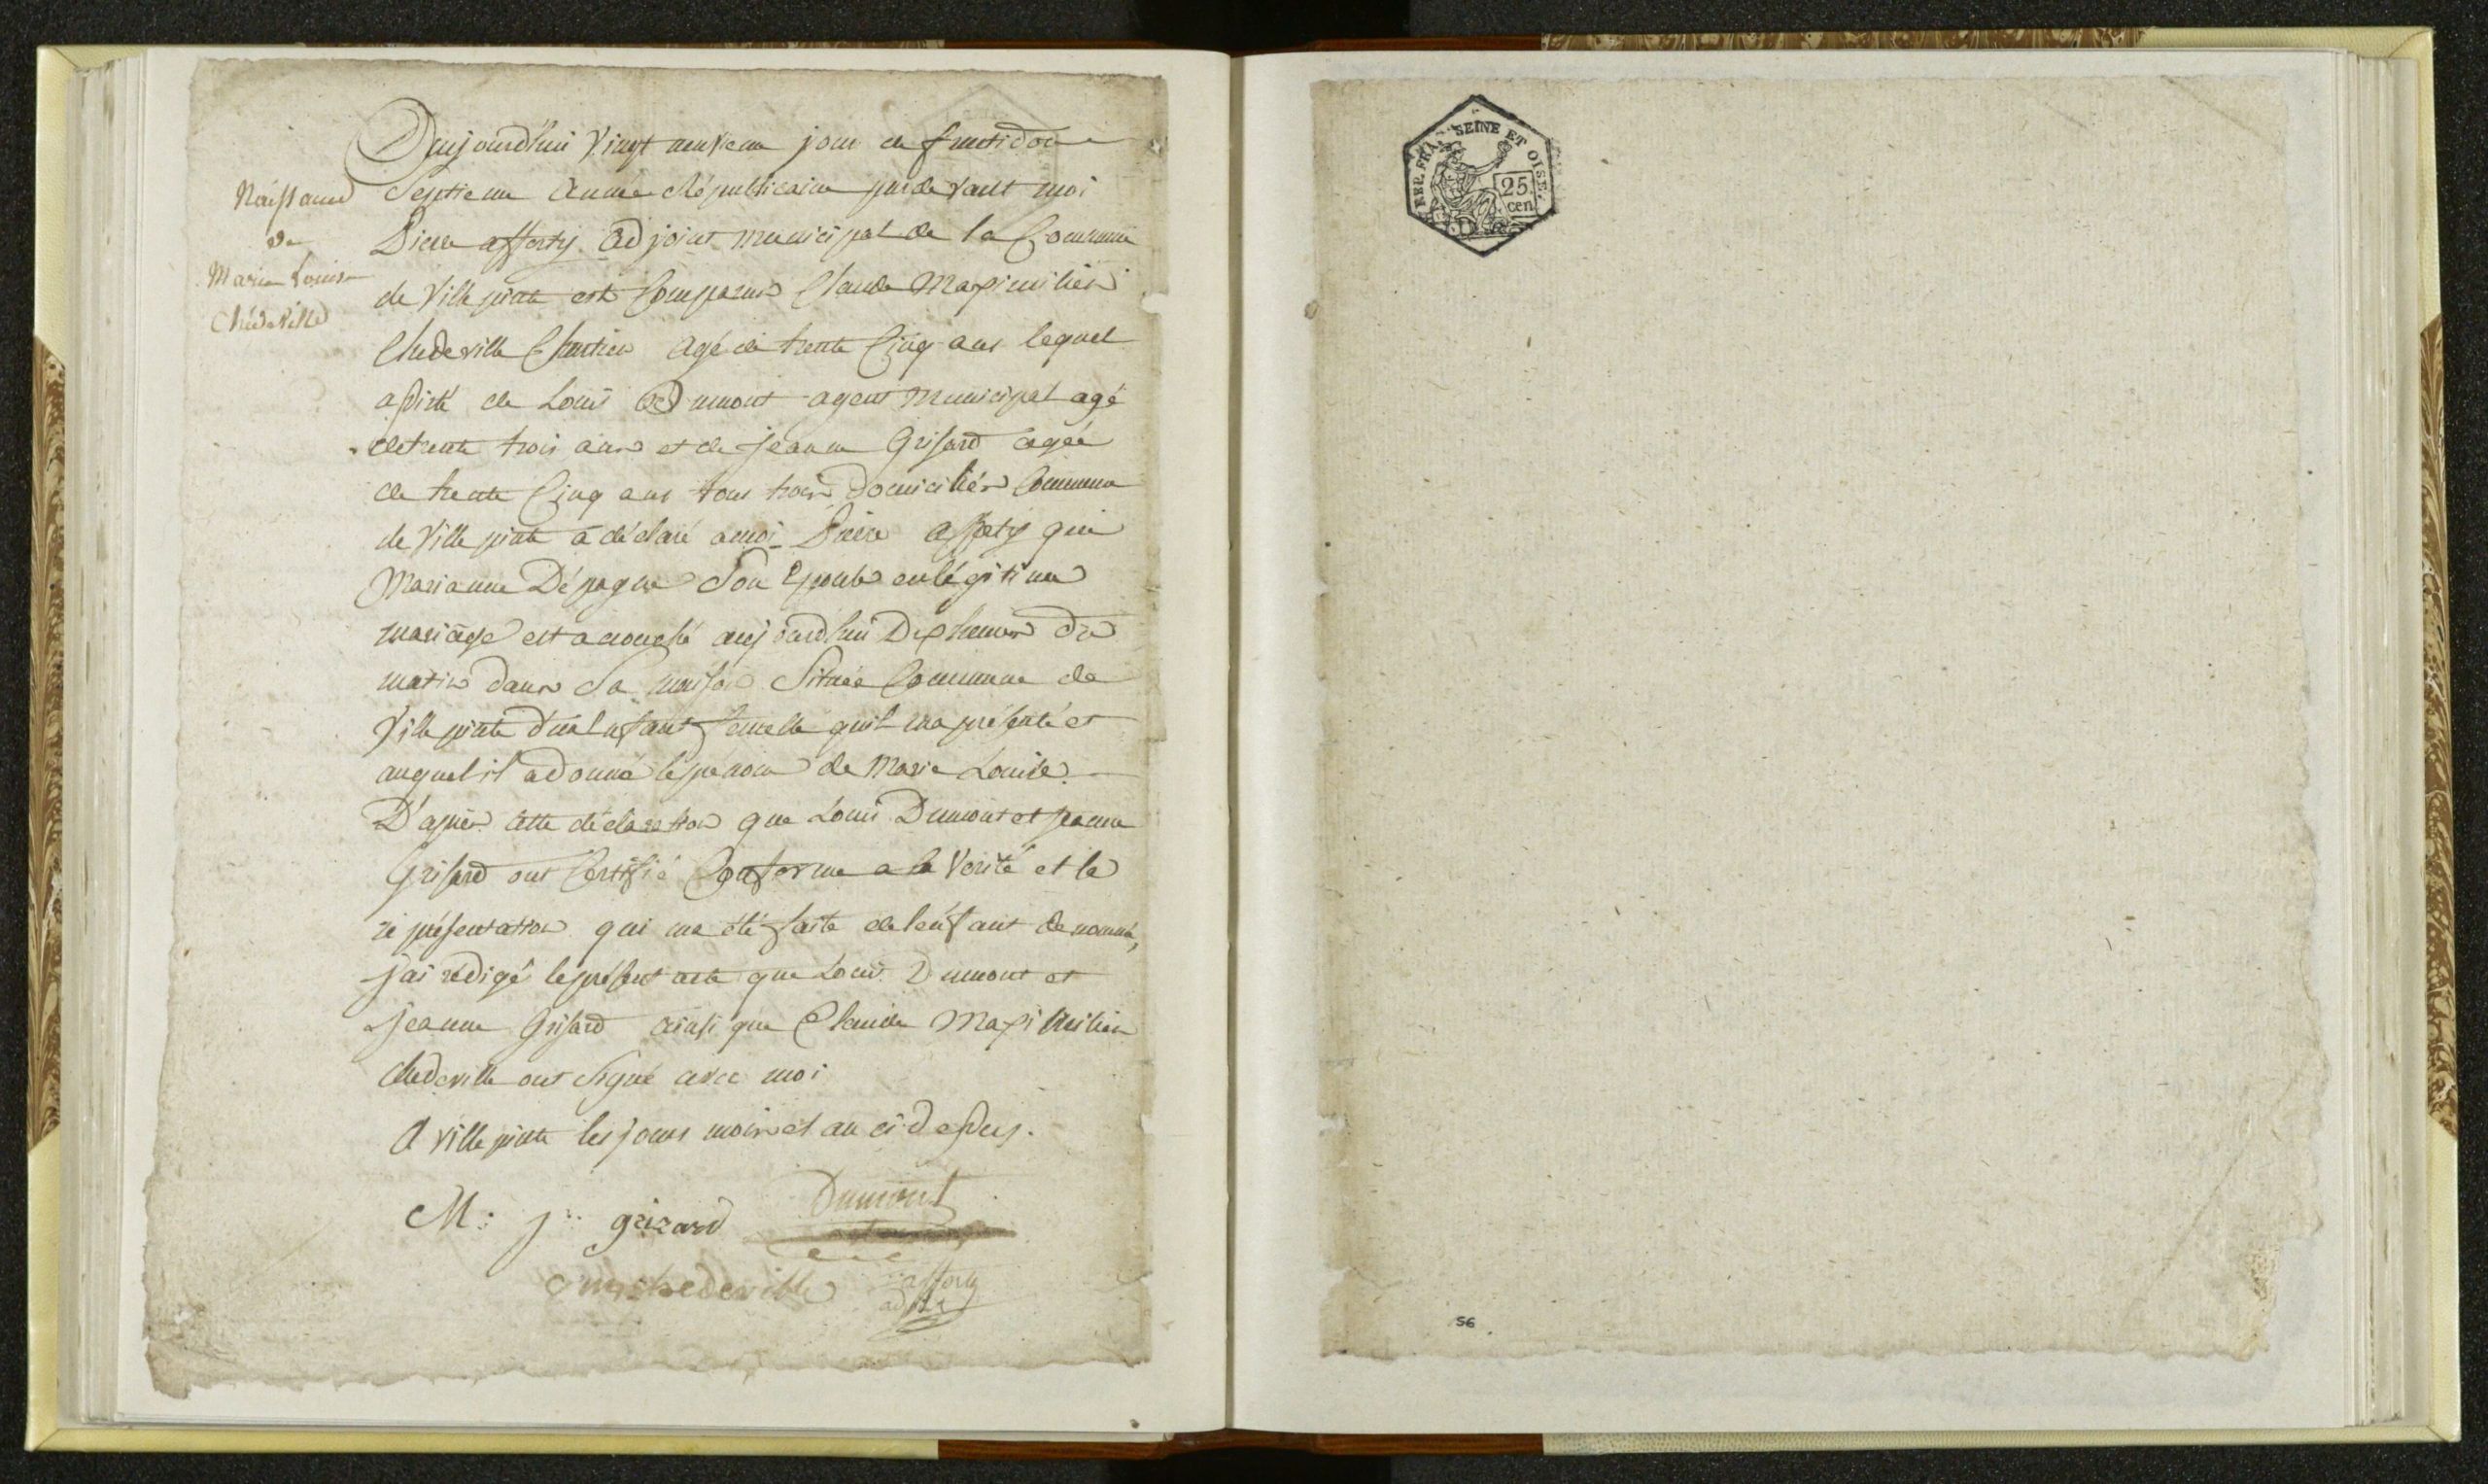 Naissance
de
Marie Louise
Chedeville
Aujourd'hui Vingt neuvieme jour de fructidor
Septieme année Républicaine pardevant moi
Pierre afforty adjoint municipal de la Commune
de Villepinte est Comparus Claude Maximilien
Chedeville Chartier agé de trente Cinq ans lequel
assisté de Louis Dumont agent Municipal agé
de trente trois ans et de jeanne Grisard agée
de trente Cinq ans tous trois domiciliés Commune
de Villepinte a déclaré a moi Pierre afforty que
Marianne Dépagne Son Epouse en légitime
mariage est acouché aujourdhui Dix heures du
matin dans Sa maison Située Commune de
Villepinte d'un Enfant femelle quil ma présenté et
auquel il a donné le prenom de Marie Louise.
D'après cette déclaration que Louis Dumont et jeanne
Grisard ont Certifié Conforme a la Verité et la
représentation qui ma été faite de lenfant denommé,
j'ai rédigé le présent acte que Louis Dumont et
jeanne Grisard ainsi que Claude Maximilien
Chedeville ont Signé avec moi
A villepinte les jours mois et an ci dessus.
M: j: grizard Dumont
chedeville afforty
adjt
REP. FRA. SEINE ET OISE.
25
cen.
56